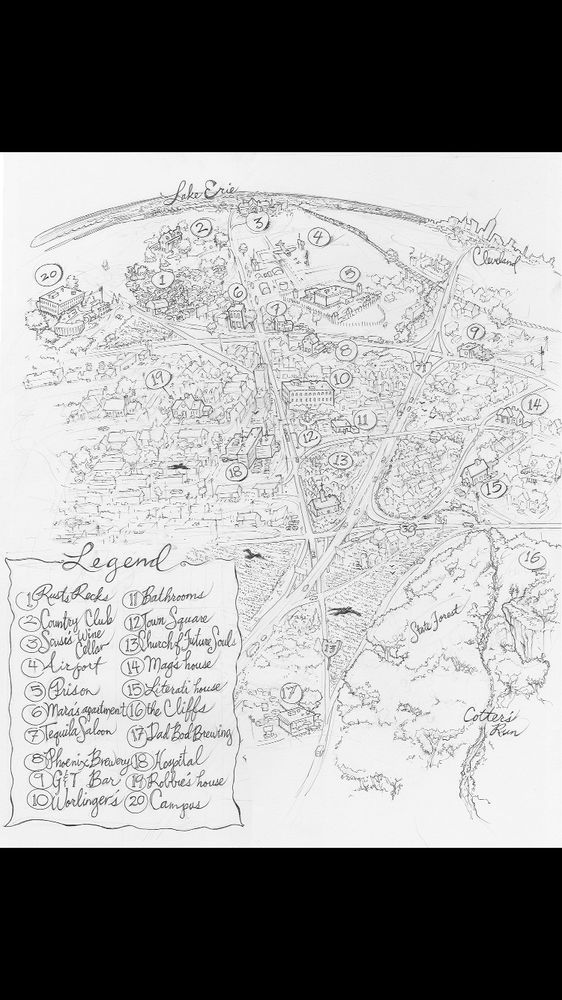 Lake Erie
Cleveland
1
2
3
4
5
6
7
8
9
10
11
12
13
14
15
16
17
18
19
20
71
30
State Forest
Cotter's
Run
Legend
1 Rust's Recks
2 Country Club
3 Wine
Cellar
4 Airport
5 Prison
6 Mara's apartment
7 Tequila Saloon
8 Phoenix Brewery
9 G&T Bar
10 Worlinger's
11 Bathrooms
12 Town Square
13 Church of Future Souls
14 Mag's house
15 Literati house
16 the Cliffs
17 Dad Bod Brewing
18 Hospital
19 Robbie's house
20 Campus